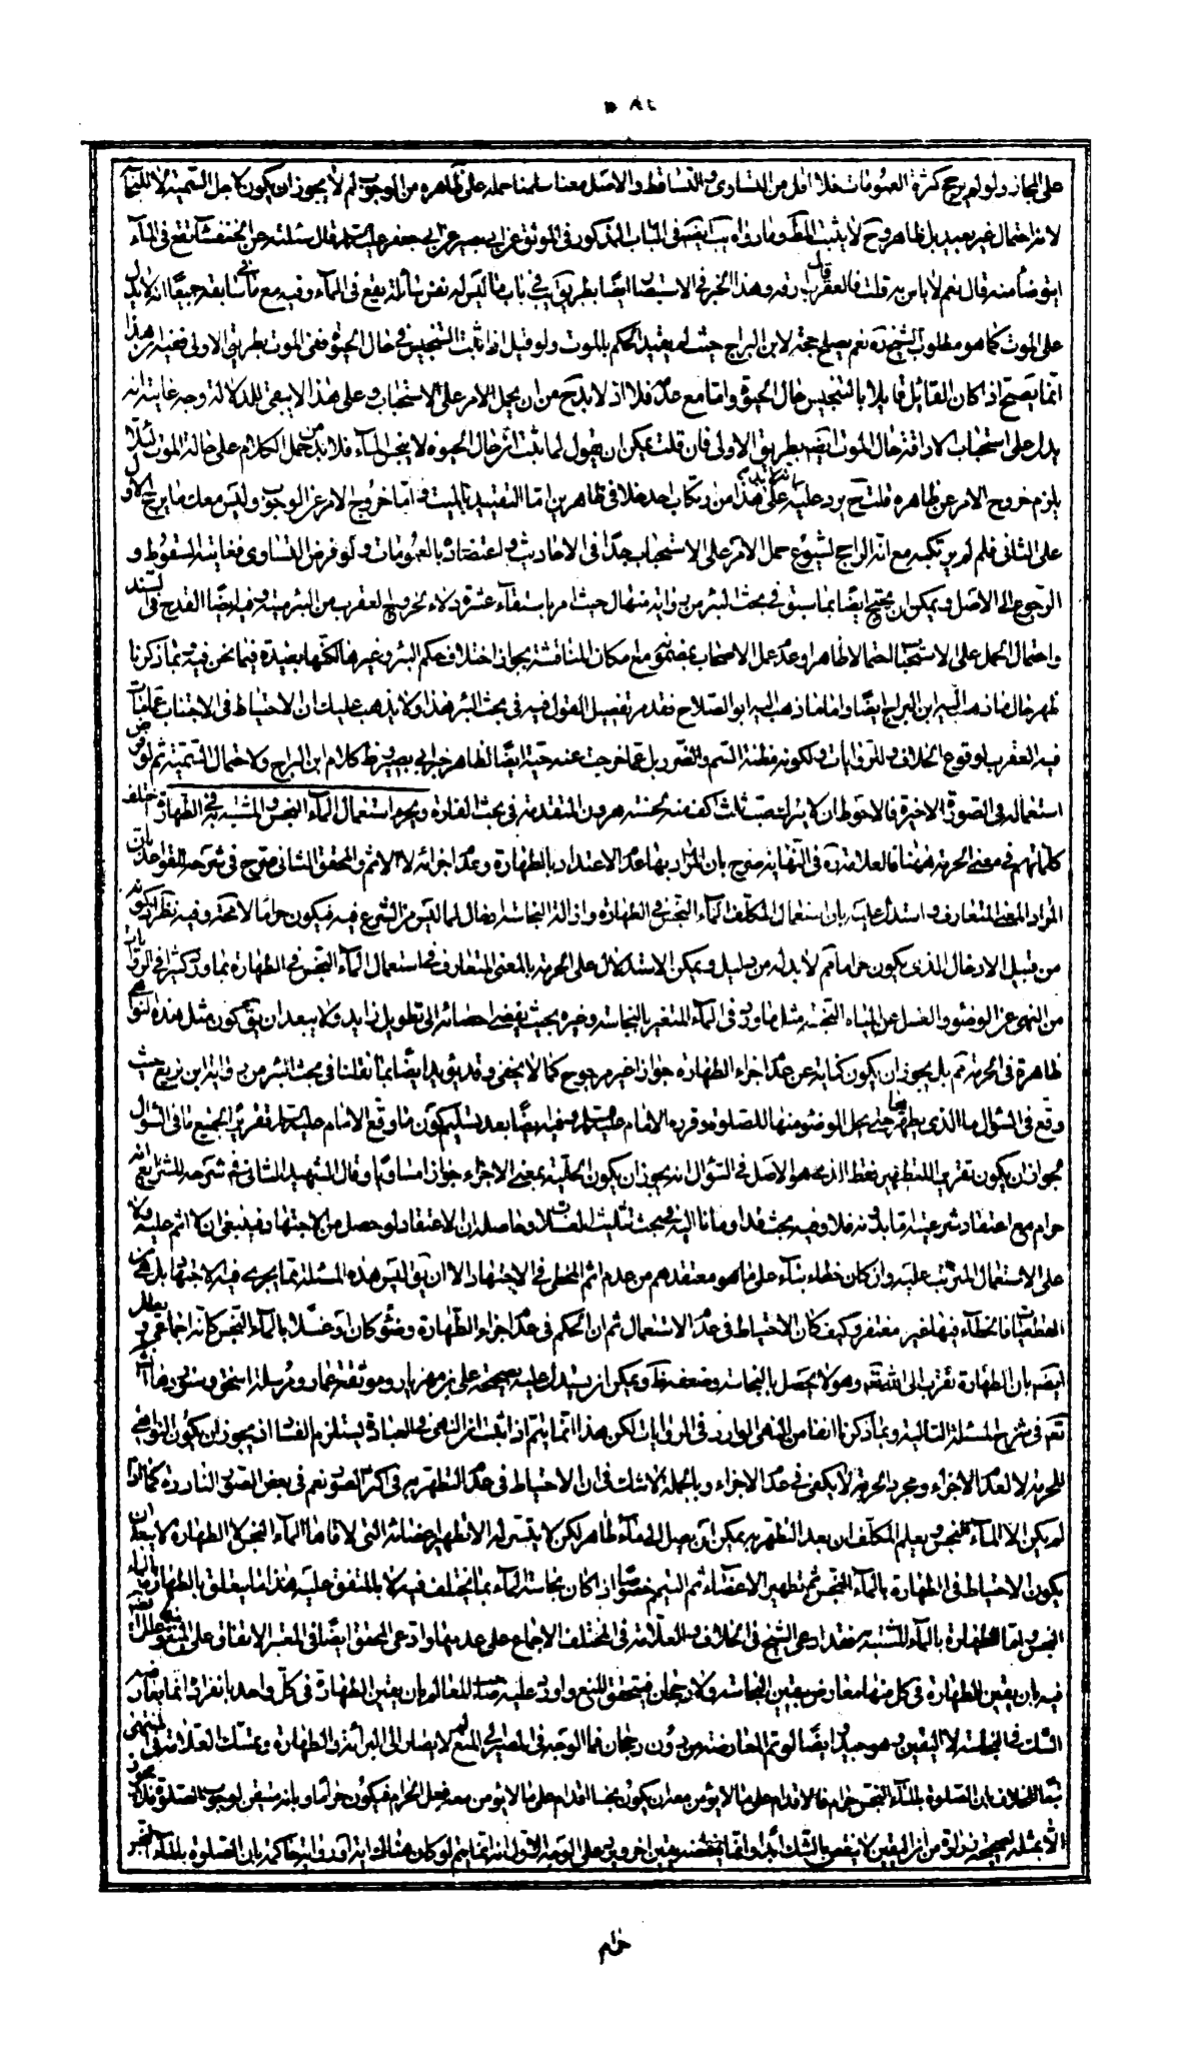 ٢٨٥
على المجاز ولو لم يرجح كثرة العمومات فلا اقل من التساوى والتساقط والاصل معنا سلمنا حمله على ظاهره من الوجوب لم لا يجوز ان يكون لاجل السمية لا للنجاسة
لانه احتمال غير بعيد بل ظاهر وح لا يثبت المط وما رواه يب ايضه فى الباب المذكور فى الموثق عن ابى بصير عن ابى جعفر عليه السلام قال سئلته عن الخنفساء تقع فى الماء
ايتوضأ منه قال نعم لا باس به قلت فالعقرب قال ارقه وهذا الخبر فى الاستبصار ايضا بطريق يب فى باب ما ليس له نفس سائلة يقع فى الماء وفيه مع ما فى سابقه جميعا انه لا يدل
على الموت كما هو مطلوب الشيخ ره نعم يصلح حجة لابن البراج حيث لم يقيد الحكم بالموت ولو قيل اذا ثبت التنجيس فى حال الحيوة ففى الموت بطريق الاولى ففيه ان هذا
انما يصح اذا كان القائل قايلا بالتنجيس حال الحيوة واما مع عدمه فلا اذ لا بد ح من ان يحمل الامر على الاستحباب وعلى هذا لا يبقى للدلالة وجه غايته انه
يدل على استحباب الاراقة حال الموت ايضه بطريق الاولى فان قلت يمكن ان يقول لما ثبت انه حال الحيوة لا ينجس الماء فلا بد من حمل الكلام على حالة الموت لئلا
يلزم خروج الامر عن ظاهره قلت ح يرد عليه انه لا بد على هذا من ارتكاب احد خلافى ظاهرين اما التقييد بالميت واما خروج الامر عن الوجوب وليس معك ما يرجح الاول
على الثانى فلم لم يرتكبه مع انه الراجح لشيوع حمل الامر على الاستحباب جدا فى الاحاديث واعتضاده بالعمومات ولو فرض التساوى فغايته السقوط و
الرجوع الى الاصل ويمكن ان يحتج ايضا بما سبق فى بحث البئر من رواية منهال حيث امر باستقاء عشرة دلاء لخروج العقرب من البئر ميتة وفيه ايضا القدح فى السند
واحتمال الحمل على الاستحباب احتمالا ظاهرا وعدم عمل الاصحاب بمضمونه مع امكان المناقشة بجواز اختلاف حكم البئر وغيرها لكنها بعيدة فيما نحن فيه وبما ذكرنا
ظهر حال ما ذهب اليه ابن البراج ايضا واما ما ذهب اليه ابو الصلاح فقد مر تفصيل القول فيه فى بحث البئر هذا ولا يذهب عليك ان الاحتياط فى الاجتناب عما مات
فيه العقرب لوقوع الخلاف والروايات ولكونه مظنة السم والضرر بل عما خرجت عنه حية ايضا لظاهر خبر ابى بصير وظ كلام ابن البراج ولاحتمال السمية ثم لو فرض
استعماله فى الصورة الاخيرة فالاحوط ان لا يترك صب ثلث اكف منه لحسنة هرون المتقدمة فى بحث الفارة ويحرم استعمال الماء النجس والمشتبه به فى الطهارة اختلف
كلماتهم فى معنى الحرمة ههنا فالعلامة ره فى النهاية صرح بان المراد بها عدم الاعتداد بالطهارة وعدم اجزائه لا الاثم والمحقق الثانى صرح فى شرحه للقواعد بان
المراد المعنى المتعارف واستدل عليه بان استعمال المكلف الماء النجس فى الطهارة وازالة النجاسة ادخال لما ليس من الشرع فيه فيكون حراما لا محة وفيه نظر اذ كونه
من قبيل الادخال الذى يكون حراما ثم لا بد له من دليل ويمكن الاستدلال على الحرمة بالمعنى المتعارف فى استعمال الماء النجس فى الطهارة بما ورد كثيرا فى الروايات
من النهى عن الوضوء والغسل عن المياه النجسة مثل ما ورد فى الماء المتغير بالنجاسة وغيره بحيث يفضى احصائه الى تطويل زايد ولا يبعد ان يق كون مثل هذه النواهى
ظاهرة فى الحرمة ثم بل يجوز ان يكون كناية عن عدم اجزاء الطهارة جوازا غير مرجوح كما لا يخفى وقد يؤيد ايضا بما نقلنا فى بحث البئر من رواية ابن بزيع حيث
وقع فى السؤال ما الذى يطهرها حتى يحل الوضوء منها للصلوة وقرره الامام عليه السلام وفيه ايضا بعد تسليم كون ما وقع الامام عليه السلام تقرير الجميع ما فى السؤال
لجواز ان يكون تقرير التطهير فقط الذى هو الاصل فى السؤال انه يجوز ان يكون الحلية بمعنى الاجزاء جوازا متساويا وقال الشهيد الثانى فى شرحه للشرايع انه
حرام مع اعتقاد شرعيته اما بدونه فلا وفيه بحث قد اومانا اليه فى بحث تثليث الغسلات وحاصله ان الاعتقاد لو حصل من الاجتهاد فينبغى ان لا اثم عليه ولا
على الاستعمال المترتب عليه وان كان خطاء بناء على ما هو معتقدهم من عدم اثم المخطى فى الاجتهاد الا ان يق ليس هذه المسئلة مما يجرى فيه الاجتهاد بل هى من
القطعيات فالخطاء فيها غير مغتفر وكيف كان الاحتياط فى عدم الاستعمال ثم ان الحكم فى عدم اجزاء الطهارة وضوء كان او غسلا بالماء النجس كانه اجماعى ويعلل
ايضه بان الطهارة تقرب الى الله تعه وهو لا يحصل بالنجاسة وضعفه ظ ويمكن ان يستدل عليه بصحيحة على بن مهزيار وموثقة عمار ومرسلة اسحق وسنوردها انشاء الله
تعه فى شرح المسئلة التالية وبما ذكرنا انفا من النهى الوارد فى الروايات لكن هذا انما يتم اذا ثبت ان النهى فى العبادة يستلزم الفساد اذ يجوز ان يكون النواهى
للحرمة لا لعدم الاجزاء ومجرد الحرمة لا يكفى فى عدم الاجزاء وبالجملة لا شك فى ان الاحتياط فى عدم التطهر به فى اكثر الصور نعم فى بعض الصور النادرة كما اذا
لم يكن الا الماء النجس ويعلم المكلف ان بعد التطهر به يمكن ان يصل الى ماء طاهر لكن لا يتيسر له الا تطهير اعضائه التى لاقاها الماء النجس لا الطهارة لا يبعد ان
يكون الاحتياط فى الطهارة بالماء النجس ثم تطهير الاعضاء ثم التيمم خصوصا اذا كان نجاسة الماء مما يختلف فيه لا بالمتفق عليه هذا ما يتعلق بالطهارة بالماء
النجس واما الطهارة بالماء المشتبه به فقد ادعى الشيخ فى الخلاف والعلامة فى المختلف الاجماع على عدمها وادعى المحقق ايضا فى المعتبر الاتفاق على المنع وعلله
فيه بان يقين الطهارة فى كل منهما معارض بيقين النجاسة ولا رجحان فيتحقق المنع واورد عليه صاحب المعالم بان يقين الطهارة فى كل واحد بانفراده انما يعارضه
الشك فى النجاسة لا اليقين وهو جيد وايضا لو تم المعارضة من دون رجحان فما الوجه فى المصير الى المنع لم لا يصار الى البرائة والطهارة وتمسك العلامة فى المنتهى
تبعا للخلاف بان الصلوة بالماء النجس حرام فالاقدام على ما لا يؤمن معه ان يكون نجسا اقدام على ما لا يؤمن معه فعل الحرام فيكون حراما وبانه متيقن لوجوب الصلوة فلا يجوز
الا بمثله لصحيحة زرارة من ان اليقين لا ينقض بالشك ابدا وانما ينقضه يقين اخر ويرد على الوجه الاول انه انما يتم لو كان هناك اية او رواية حاكمة بان الصلوة بالماء النجس
حرام